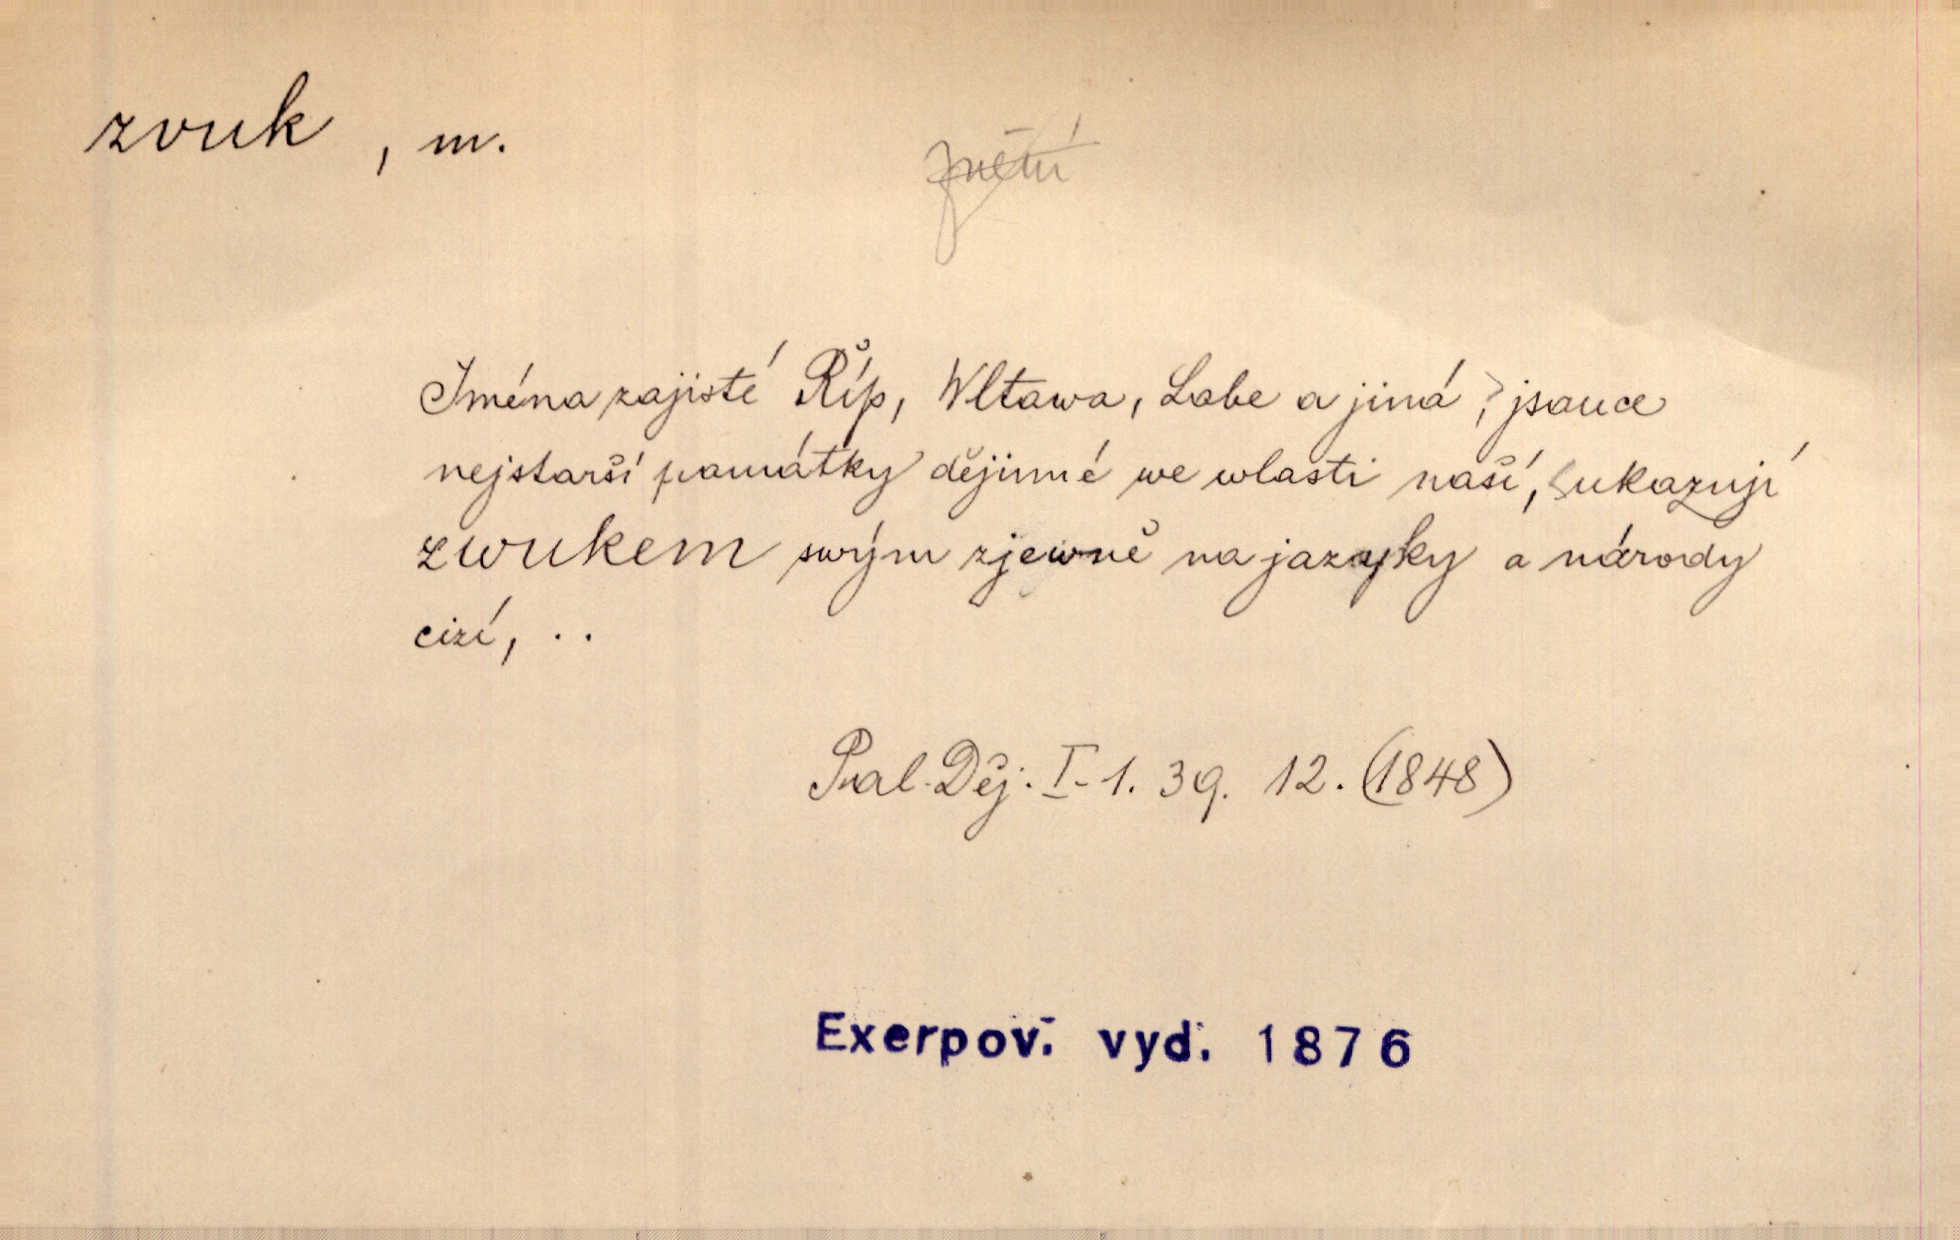 zvuk, m.
Jména zajisté Říp, Wltawa, Labe a jiná, jsauce
nejstarší památky dějinné we wlasti naší, ukazují
zwukem swým zjewně na jazyky a národy
cizí, ..
Pal. Děj. I-1. 39. 12. (1848)
Exerpov. vyd. 1876